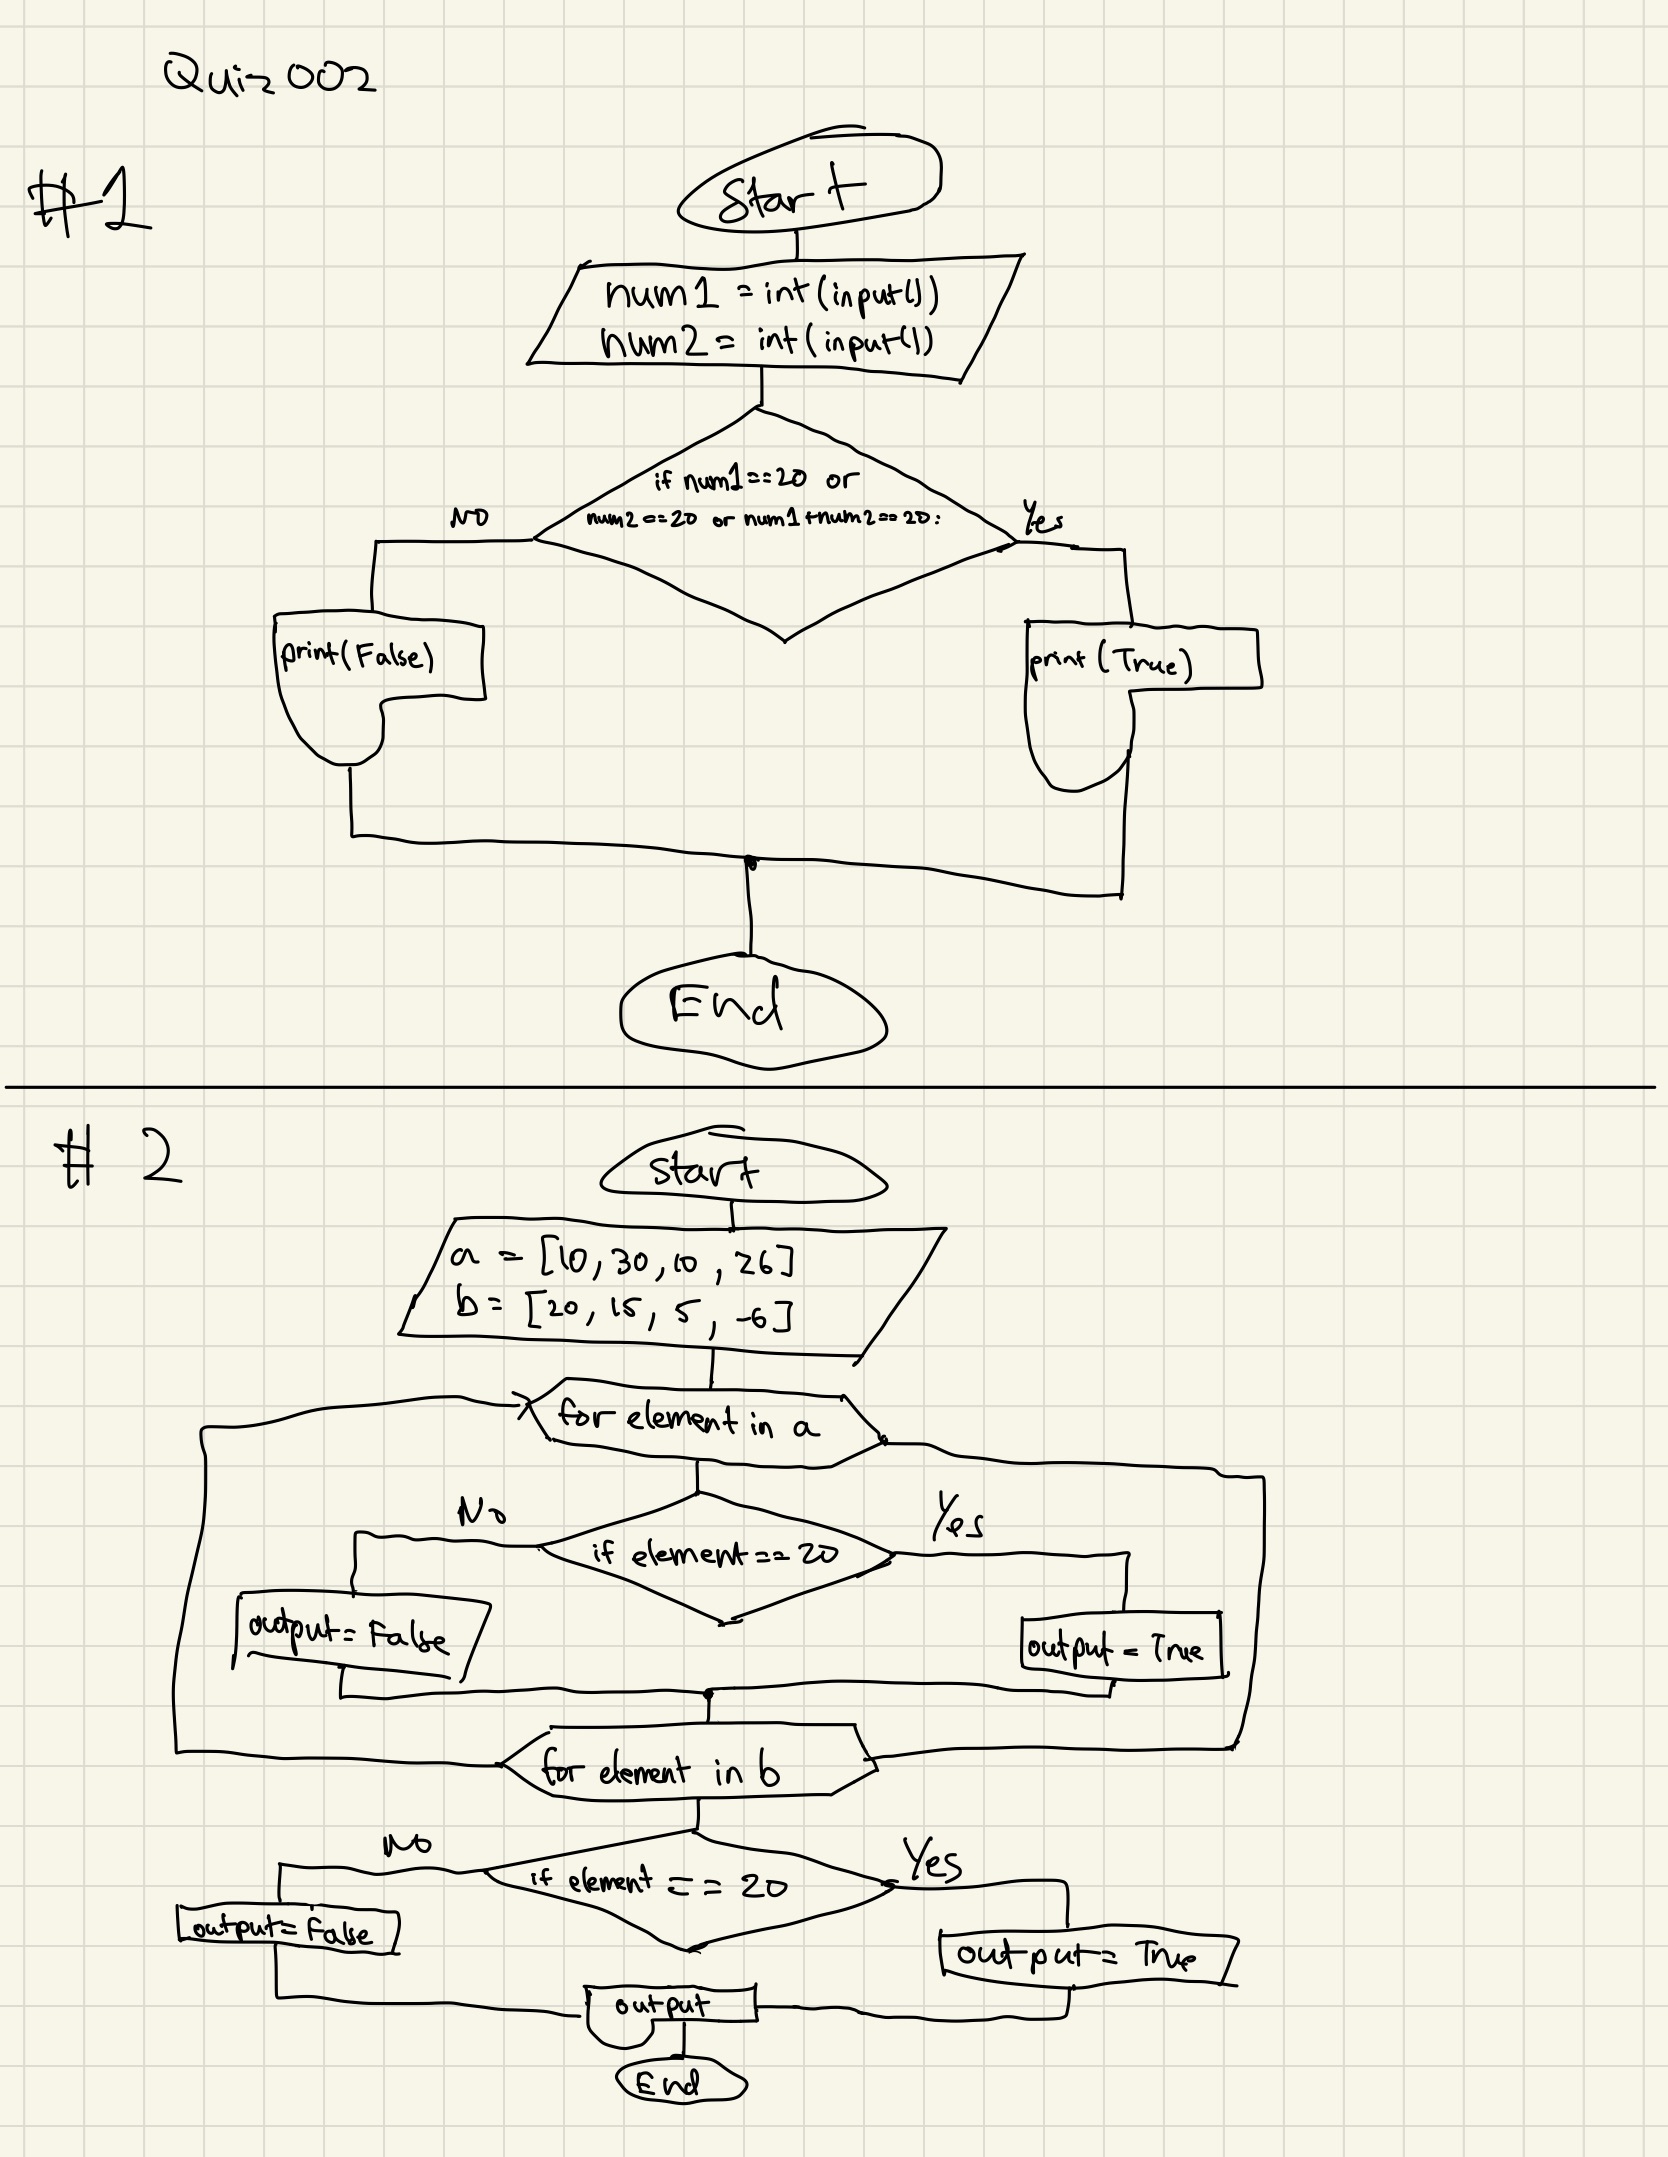 Quiz002
#1
Start
num1 = int(input())
num2 = int(input())
if num1==20 or
num2==20 or num1+num2==20:
NO
Yes
print(False)
print(True)
End
# 2
Start
a = [10, 30, 10, 26]
b = [20, 15, 5, -6]
for element in a
No
Yes
if element == 20
output= False
output = True
for element in b
No
Yes
if element == 20
output= False
output= True
output
End